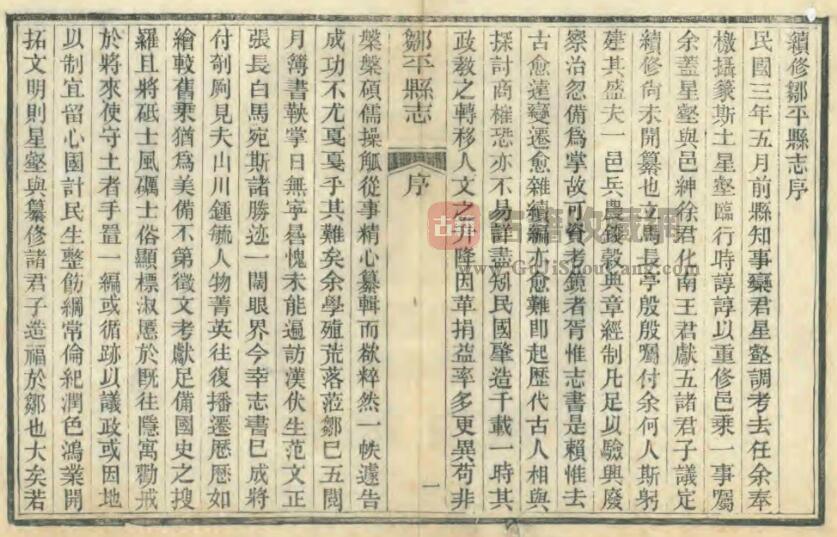 續修鄒平縣志序
民國三年五月前縣知事欒君星壑調考去任余奉
檄攝篆斯土星壑臨行時諄諄以重修邑乘一事屬
余蓋星壑與邑紳徐君化南王君獻五諸君子議定
續修尚未開纂也立馬長亭殷殷囑付余何人斯躬
建其盛夫一邑兵農錢穀典章經制凡足以驗興廢
察治忽備為掌故可資考鏡者胥惟志書是賴惟去
古愈遠變遷愈雜續編亦愈難即起歷代古人相與
探討商榷恐亦不易詳盡矧民國肇造千載一時其
政教之轉移人文之升降因革損益率多更異苟非
鄒平縣志 序 一
槃槃碩儒操觚從事精心纂輯而欲粹然一帙遽告
成功不尤戛戛乎其難矣余學殖荒落蒞鄒已五閱
月簿書鞅掌日無寧晷愧未能遍訪漢伏生范文正
張長白馬宛斯諸勝迹一闊眼界今幸志書已成將
付剞劂見夫山川鍾毓人物菁英往復播遷歷歷如
繪較舊乘猶為美備不第徵文考獻足備國史之搜
羅且將砥士風礪士俗顯標淑慝於既往隱寓勸戒
於將來使守土者手置一編或循跡以議政或因地
以制宜留心國計民生整飭綱常倫紀潤色鴻業開
拓文明則星壑與纂修諸君子造福於鄒也大矣若
古籍 古籍收藏網
www.GuJiShouCang.com